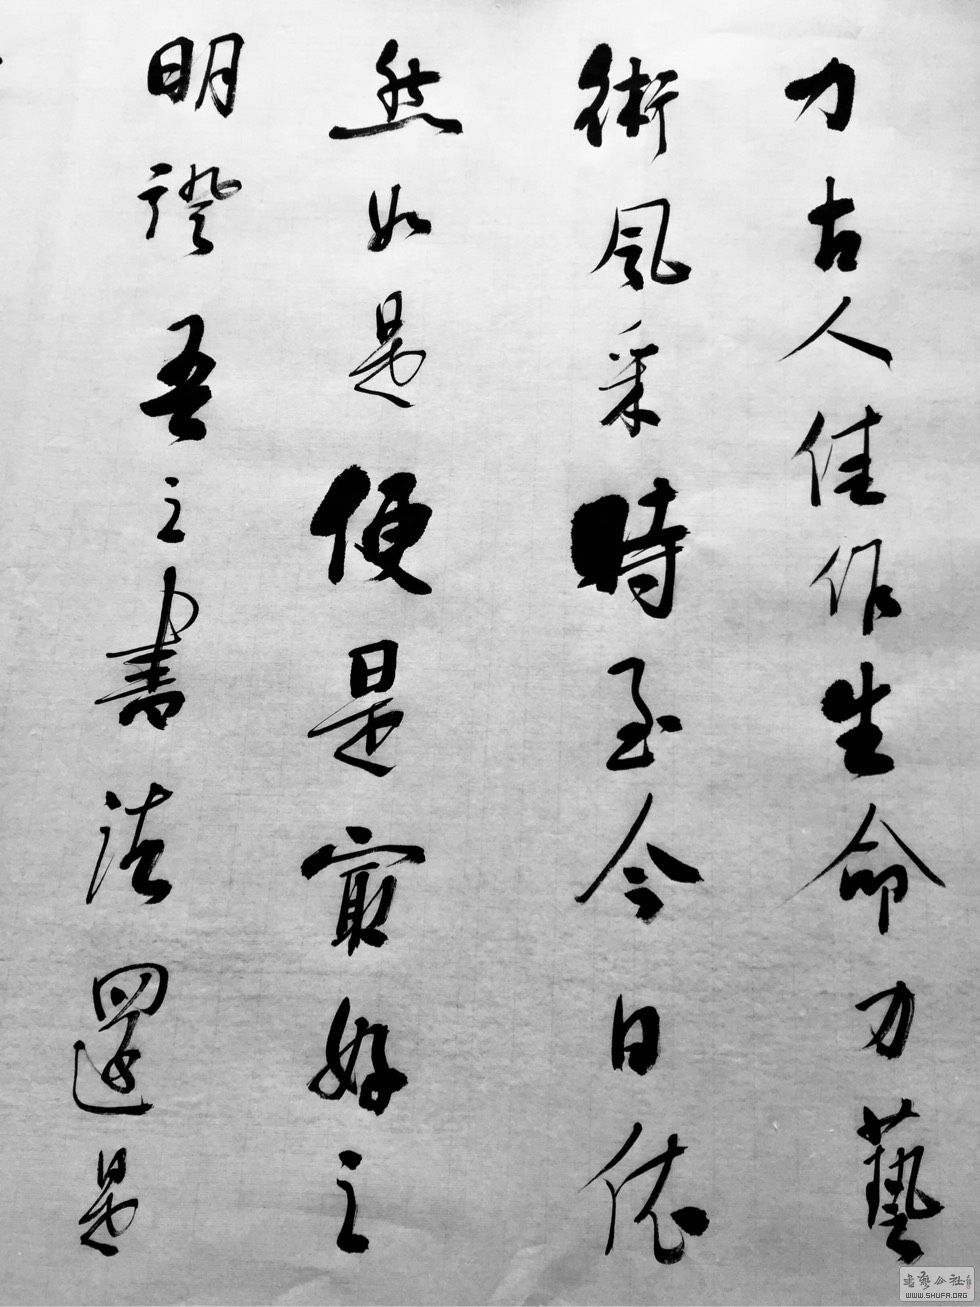 力古人佳作生命力藝
術風采時至今日依
然如是便是最好之
明證吾之書法還是
書藝公社
WWW.SHUFA.ORG